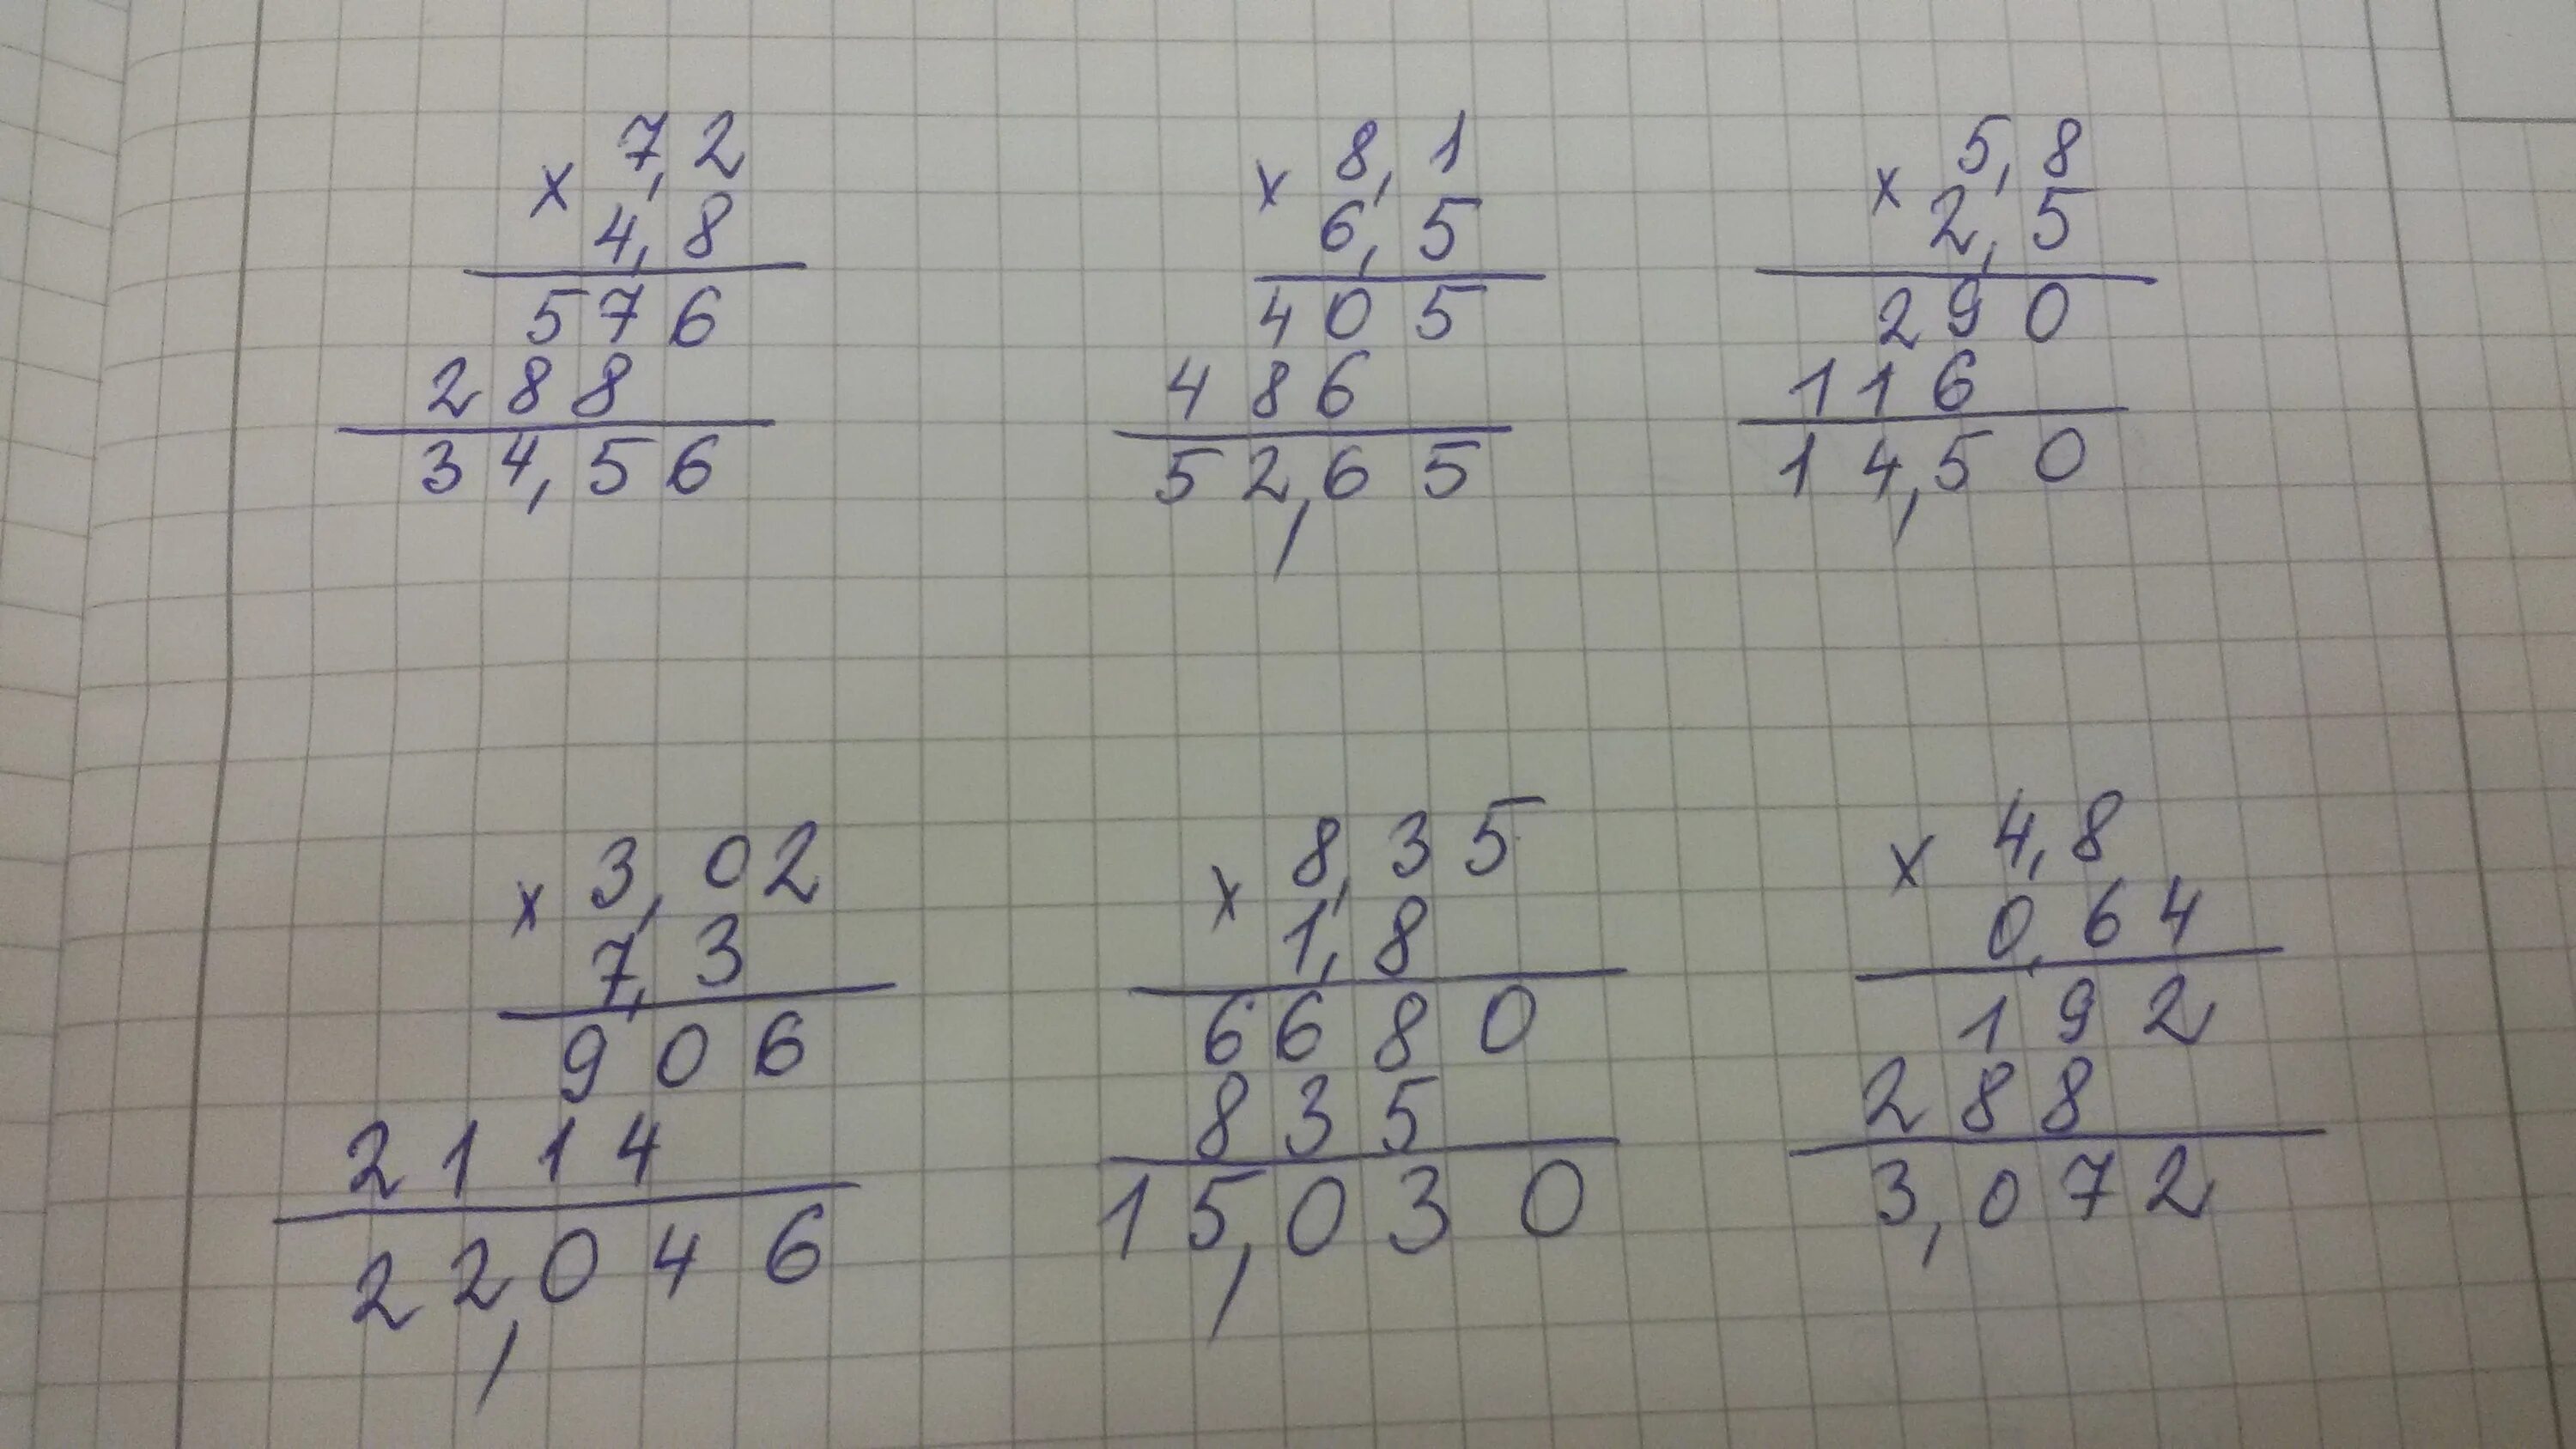 7,2
× 4,8
576
288
34,56
8,1
× 6,5
405
486
52,65
5,8
× 2,5
290
116
14,50
3,02
× 7,3
906
2114
22,046
8,35
× 1,8
6680
835
15,030
4,8
× 0,64
192
288
3,072